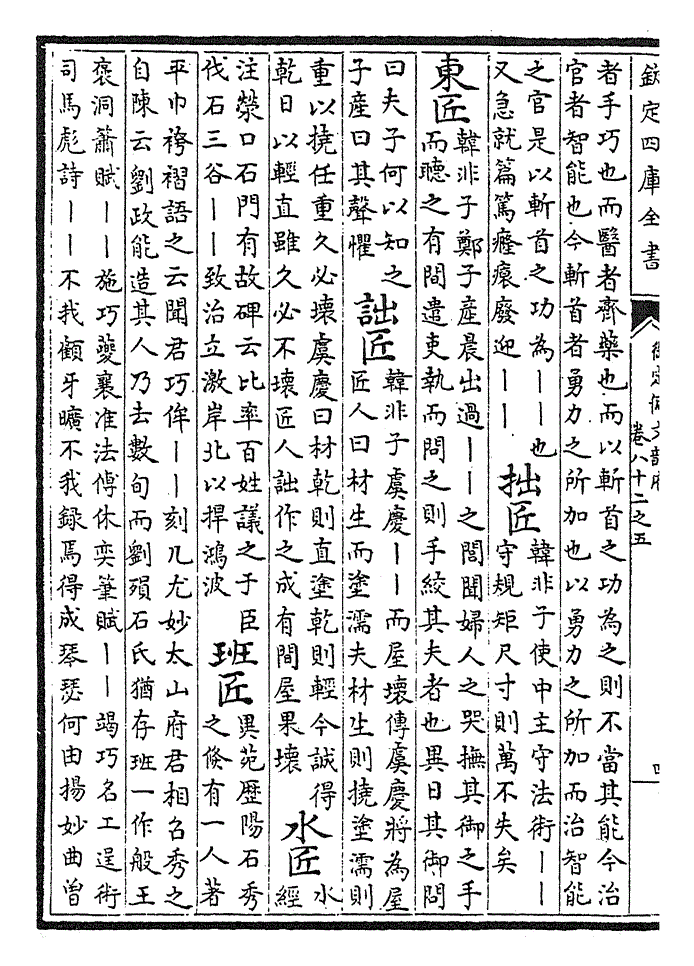 欽定四庫全書
卷八十二之五
者手巧也而醫者齊藥也而以斬首之功為之則不當其能今治
官者智能也今斬首者勇力之所加也以勇力之所加而治智能
之官是以斬首之功為——也
又急就篇篤癃瘝廢迎——
拙匠
韓非子使中主守法術——
守規矩尺寸則萬不失矣
東匠
韓非子鄭子產晨出過——之閭聞婦人之哭撫其御之手
而聽之有間遣吏執而問之則手絞其夫者也異日其御問
曰夫子何以知之
子產曰其聲懼
詘匠
韓非子虞慶——而屋壞傳虞慶將為屋
匠人曰材生而塗濡夫材生則撓塗濡則
重以撓任重久必壞虞慶曰材乾則直塗乾則輕今誠得
乾日以輕直雖久必不壞匠人詘作之成有間屋果壞
水匠
水
經
注滎口石門有故碑云比率百姓議之于臣
伐石三谷——致治立激岸北以捍鴻波
班匠
異苑歷陽石秀
之倏有一人著
平巾袴褶語之云聞君巧侔——刻几尤妙太山府君相召秀之
自陳云劉政能造其人乃去數旬而劉殞石氏猶存班一作般王
褒洞簫賦——施巧夔襄准法傅休奕筆賦——竭巧名工逞術
司馬彪詩——不我顧牙曠不我録焉得成琴瑟何由揚妙曲曾